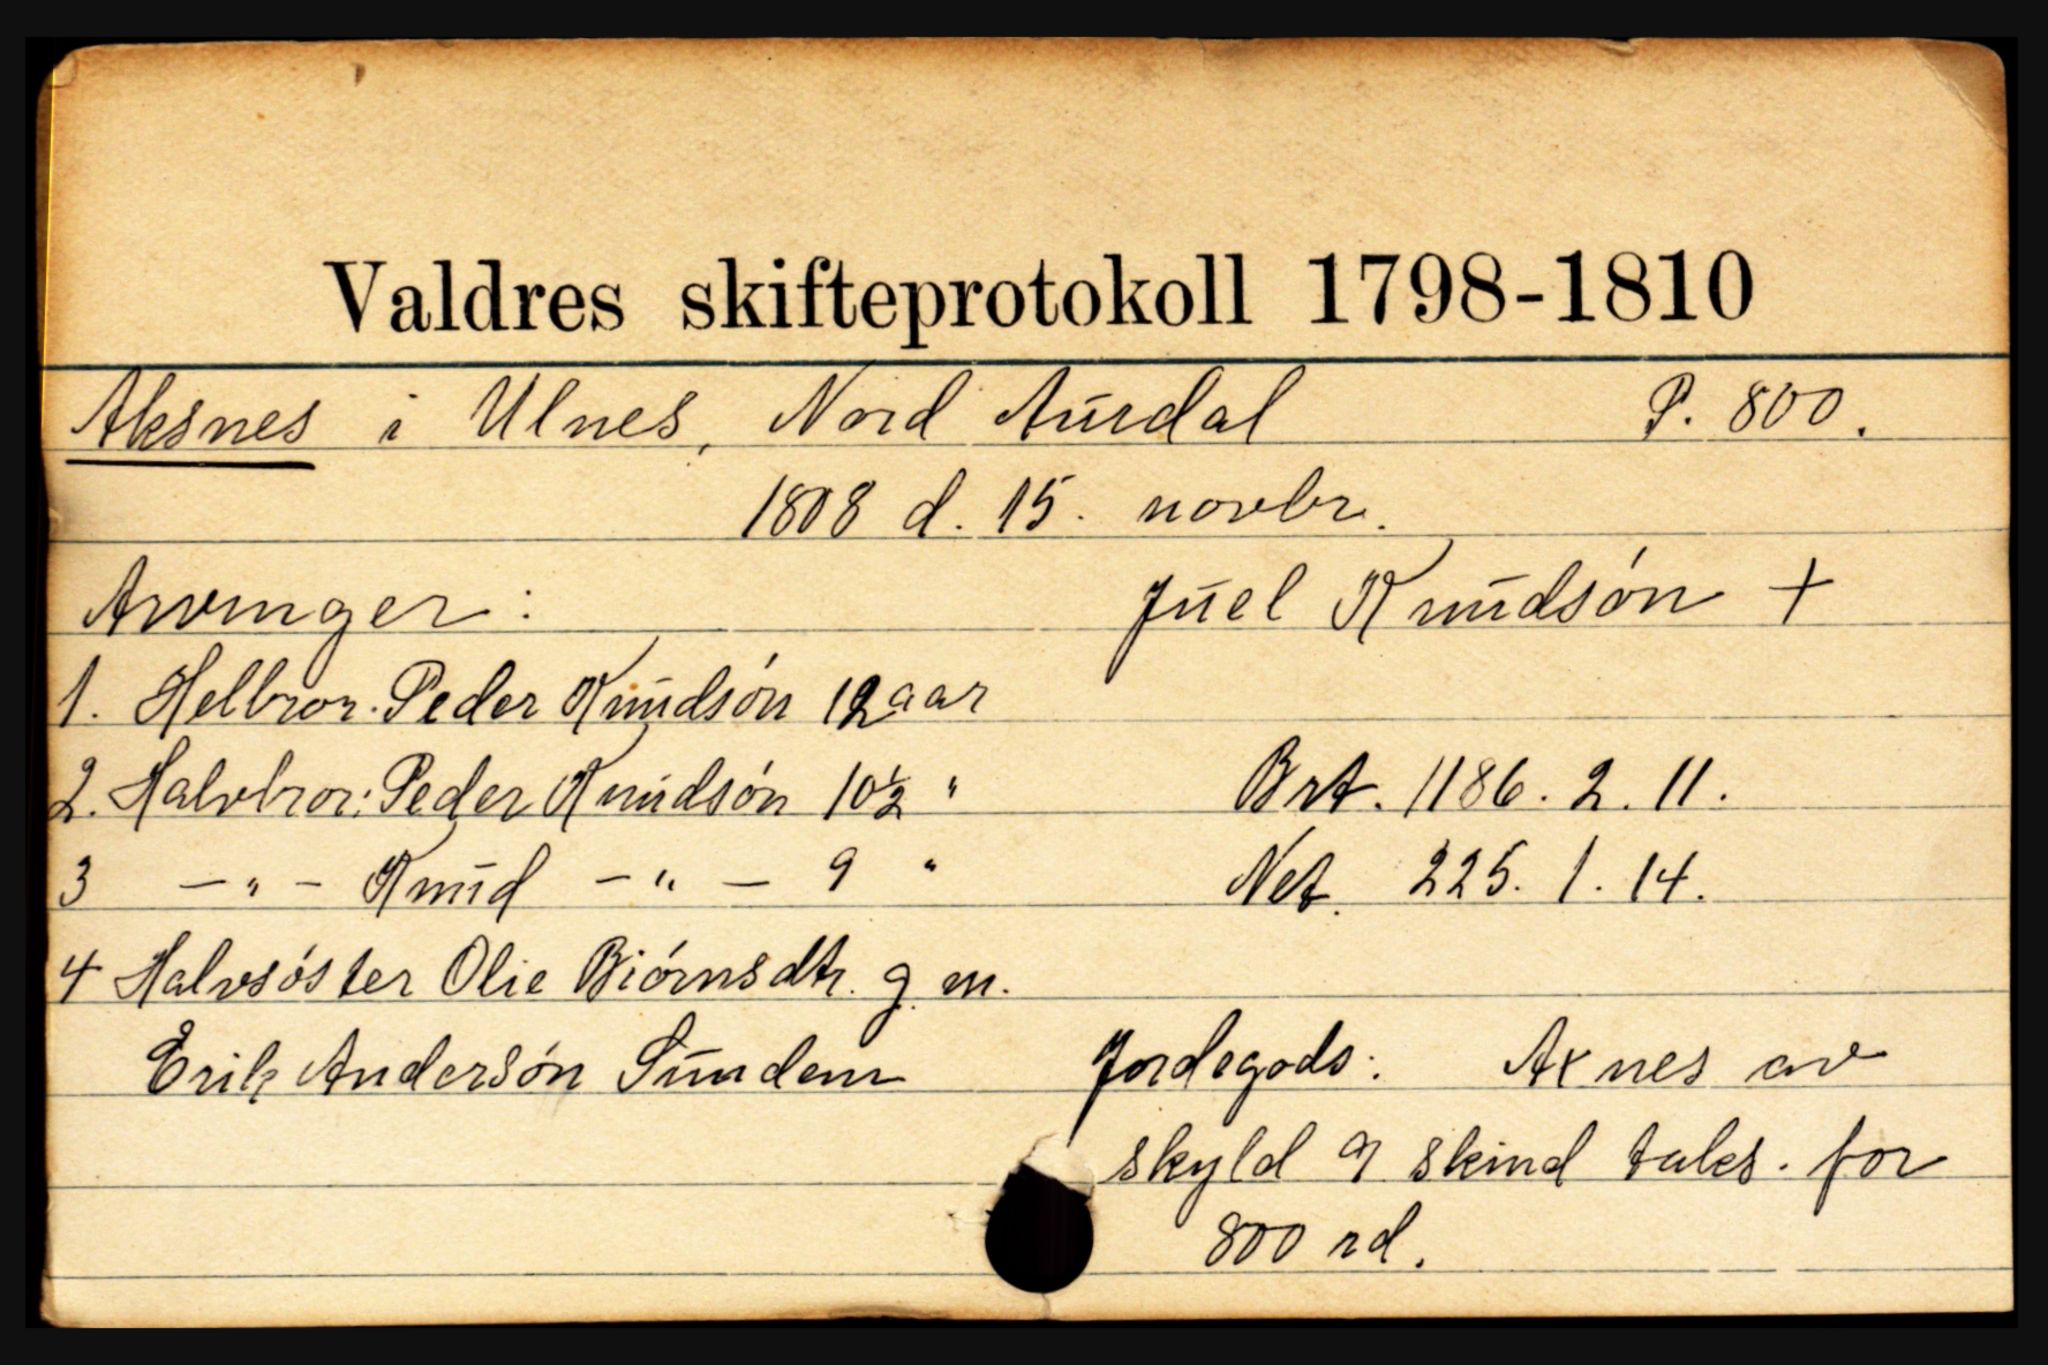 Valdres skifteprotokoll 1798-1810
Aksnes i Ulnes, Nord Aurdal P. 800.
1808 d. 15. novbr.
Arvinger: Juel Knudsón +
1. Helbror. Peder Knudsón 12 aar
2. Halvbror: Peder Knudsón 10½ " Brt. 1186. 2. 11.
3 -"- Knud -"- 9 " Net. 225. 1. 14.
4 Halvsóster Olie Biórnsdtr. g. m.
Erik Andersón Sundem Jordegods: Axnes av
skyld 9 skind taks. for
800 rd.